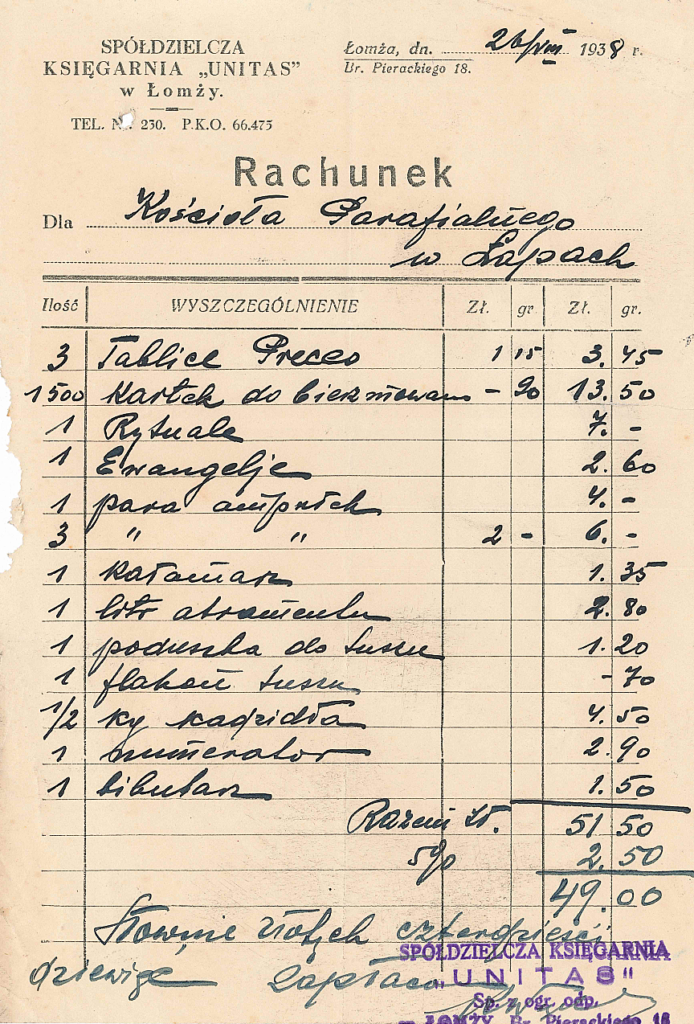 SPÓŁDZIELCZA
KSIĘGARNIA „UNITAS"
w Łomży.
TEL. N. 230. P.K.O. 66.475
Łomża, dn. 26/VIII 1938 r.
Br. Pierackiego 18.
Rachunek
Dla Kościoła Parafialnego
w Łapach
Ilość WYSZCZEGÓLNIENIE Zł. gr Zł. gr.
3 Tablice Preces 1 15 3. 45
1500 Kartek do bierzmowan - 90 13. 50
1 Rytuale 7. -
1 Ewangelje 2. 60
1 para ampułek 4. -
3 " " 2 - 6. -
1 kałamarz 1. 35
1 litr atramentu 2. 80
1 poduszka do tuszu 1. 20
1 flakon tuszu - 70
1/2 kg kadzidła 4. 50
1 numerator 2. 90
1 bibularz 1. 50
Razem zł. 51 50
5% 2. 50
49. 00
Słownie złotych czterdzieści
dziewięć
SPÓŁDZIELCZA KSIĘGARNIA
„UNITAS"
Sp. z ogr. odp.
w ŁOMŻY, Br. Pierackiego 18